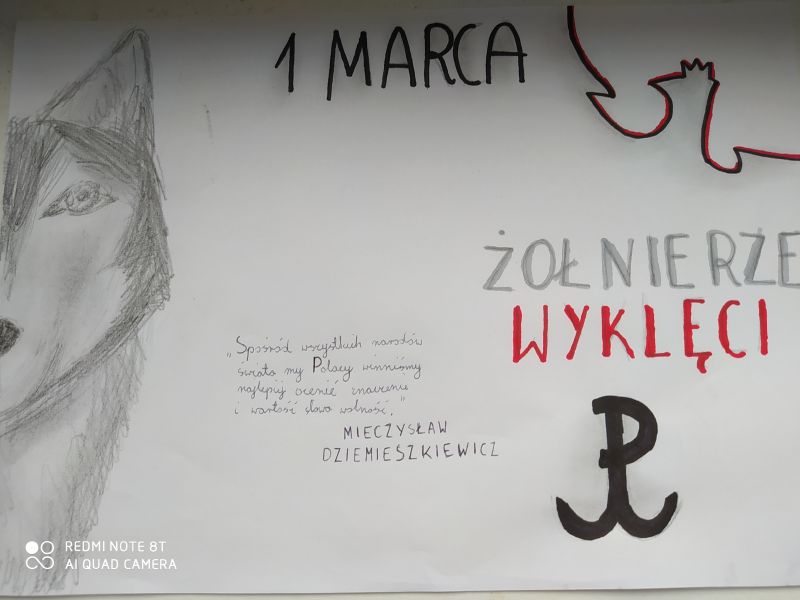 1 MARCA
ŻOŁNIERZE
WYKLĘCI
„Spośród wszystkich narodów
świata my Polacy winniśmy
najlepiej ocenić znaczenie
i wartość słowa wolność."
MIECZYSŁAW
DZIEMIESZKIEWICZ
REDMI NOTE 8T
AI QUAD CAMERA